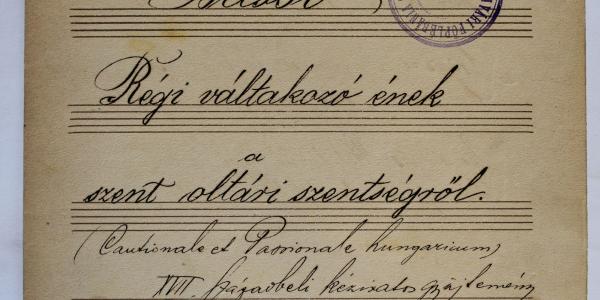 Régi váltakozó ének
a
szent oltári szentségről.
(Cantionale et Passionale hungaricum)
XVII. századbeli kéziratos gyűjtemény